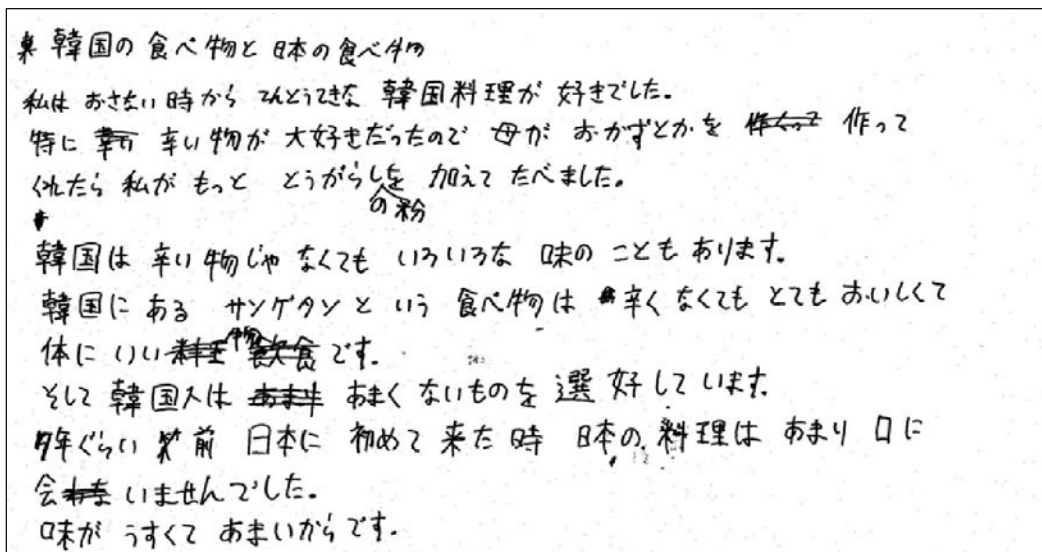 韓国の食べ物と日本の食べ物
私は おさない時から でんとうてきな 韓国料理が 好きでした。
特に 辛い物が 大好きだったので 母が おかずとかを 作って
くれたら 私が もっと とうがらしの粉を 加えて たべました。
韓国は 辛い物じゃ なくても いろいろな 味の ことも あります。
韓国に ある サンゲタンと いう 食べ物は 辛く なくても とても おいしくて
体に いい 物です。
そして 韓国人は あまく ないものを 選好しています。
年ぐらい 前 日本に 初めて 来た 時 日本の 料理は あまり 口に
会いませんでした。
味が うすくて あまいからです。